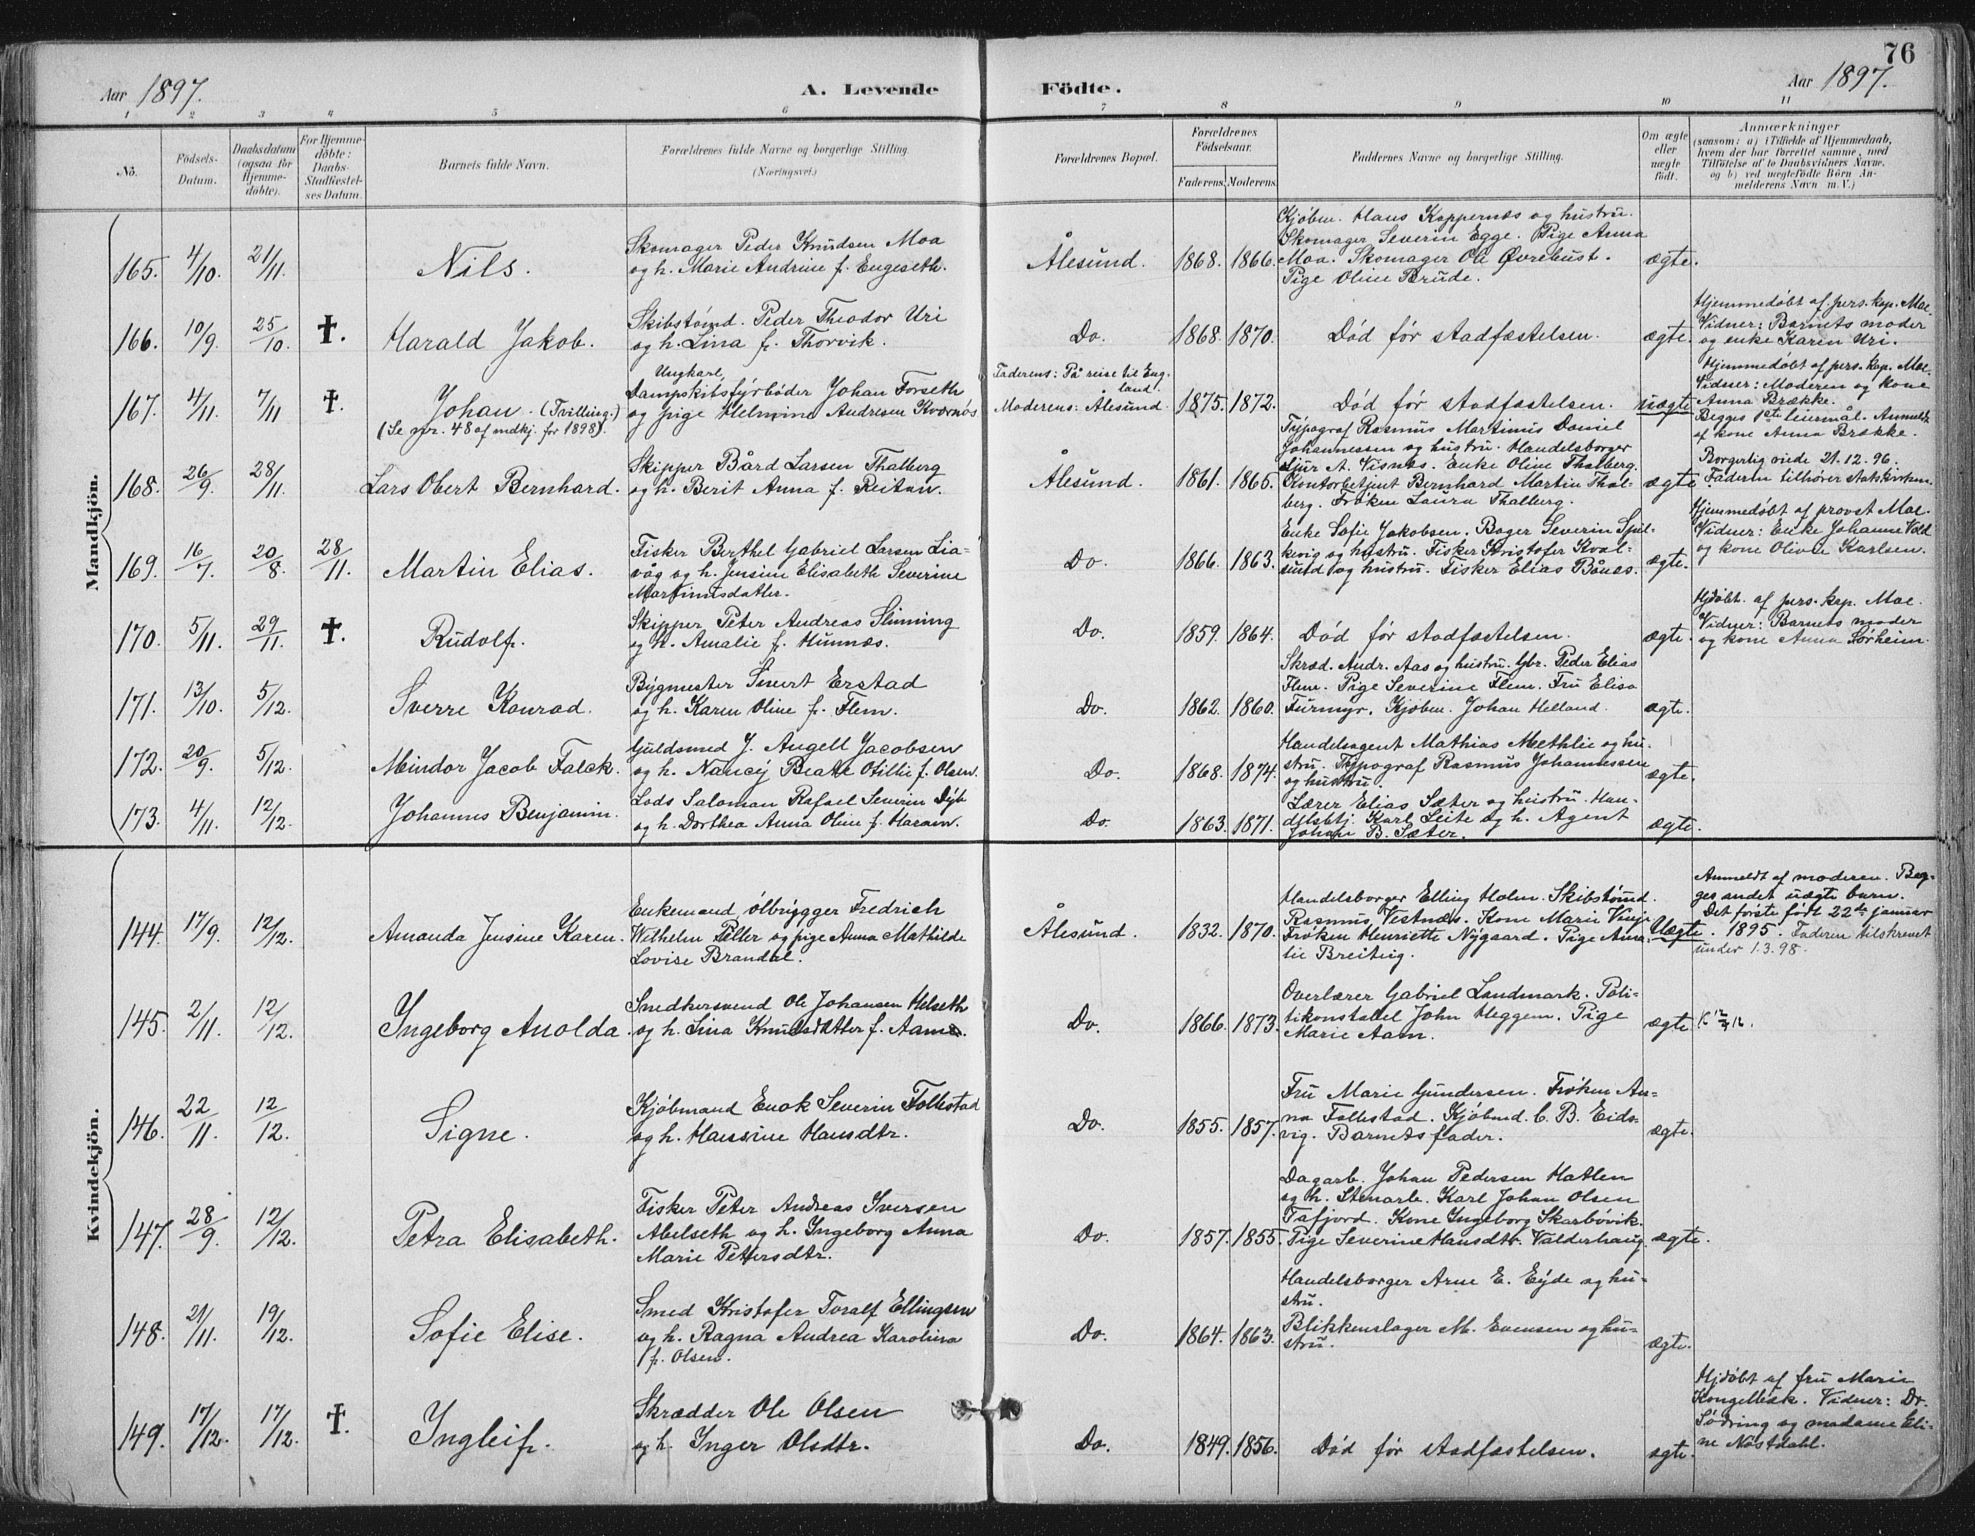 76
Aar 1897.
A. Levende Födte.
Aar 1897.
1 2 3 4 5 6 7 8 9 10 11
No.
Födsels-
Datum.
Daabsdatum
(ogsaa for
Hjemme-
döbte).
For Hjemme-
döbte:
Daabs-
Stadfæstel-
ses Datum.
Barnets fulde Navn.
Forældrenes fulde Navne og borgerlige Stilling.
(Næringsvei.)
Forældrenes Bopæl.
Forældrenes
Födselsaar.
Faderens. Moderens.
Faddernes Navne og borgerlige Stilling.
Om ægte
eller
uægte
födt.
Anmærkninger
(saasom: a) i Tilfælde af Hjemmedaab,
hvem der har forrettet samme, med
Tilföielse af to Daabsvidners Navne,
og b) ved uægtefödte Börn An-
melderens Navn m. V.)
Mandkjön.
165. 4/10 21/11 Nils.
Skomager Peder Knudsen Moa
og h. Marie Andrine f. Engeseth.
Ålesund. 1868. 1866.
Kjøbm. Hans Koppernæs og hustru.
Skomager Severin Egge. Pige Anna
Moa. Skomager Ole Øvrebust.
Pige Oline Brude.
ægte.
166. 10/9 25/10 †. Harald Jakob.
Skibstømd. Peder Theodor Uri
og h. Lina f. Thorvik.
Do. 1868. 1870. Død før stadfæstelsen. ægte.
Hjemmedøbt af pers. kap. Moe.
Vidner: Barnets moder
og enke Karen Uri.
167. 4/11 7/11 †. Johan. (Tvilling.)
(Se nr. 48 af mdkj. for 1898).
Ungkarl,
Dampskibsfyrbøder Johan Forseth
og pige Helmine Andresen Kvernes
Faderens: På reise til Eng-
land.
Moderens: Ålesund.
1875. 1872. Død før stadfæstelsen. uægte
Hjemmedøbt af pers. kap. Moe.
Vidner: Moderen og kone
Anna Brække.
Begges 1ste leiermål. Anmeldt
af kone Anna Brække.
168. 26/9 28/11 Lars Obert Bernhard.
Skipper Bård Larsen Thalberg
og h. Berit Anna f. Reitan.
Ålesund. 1861. 1865.
Typograf Rasmus Martinus Daniel
Johannessen og hustru. Handelsborger
Sjur A. Visnæs. Enke Oline Thalberg.
Kontorbetjent Bernhard Martin Thal-
berg. Frøken Laura Thalberg.
ægte
Borgerlig viede 21.12.96.
Faderen tilhører statskirken.
169. 16/7 20/8 28/11. Martin Elias.
Fisker Berthel Gabriel Larsen Lia-
våg og h. Jensine Elisabeth Severine
Martinusdatter.
Do. 1866. 1863.
Enke Sofie Jakobsen. Bager Severin Spil-
kevig og hustru. Fisker Kristofer Kval-
sund og hustru. Fisker Elias Bånes.
ægte.
Hjemmedøbt af provst Moe.
Vidner: Enke Johanne Vold
og kone Olivie Karlsen.
170. 5/11 29/11 †. Rudolf.
Skipper Peter Andreas Slinning
og h. Amalie f. Hunnæs.
Do. 1859. 1864. Død før stadfæstelsen. ægte.
Hjdøbt. af pers. kap. Moe.
Vidner: Barnets moder
og kone Anna Sørheim.
171. 13/10 5/12. Sverre Konrad.
Bygmester Sivert Erstad
og h. Karen Oline f. Flem.
Do. 1862. 1860.
Skræd. Andr. Aas og hustru. Gbr. Peder Elias
Flem. Pige Severine Flem. Fru Elisa
Furmyr. Kjøbm. Johan Helland.
ægte.
172. 20/9 5/12. Meindor Jacob Falck.
Guldsmed J. Angell Jacobsen
og h. Nancy Beate Otillie f. Olsen.
Do. 1868. 1874.
Handelsagent Mathias Methlie og hu-
stru. Typograf Rasmus Johannessen
og hustru.
ægte.
173. 4/11 12/12. Johannes Benjamin.
Lods Saloman Rafael Severin Dyb
og h. Dorthea Anna Oline f. Haram.
Do. 1863. 1871.
Lærer Elias Sæter og hustru. Han-
delsbtj. Karl Leite og h. Agent
Johan B. Sæter.
ægte.
Kvindekjön.
144. 17/9 12/12. Amanda Jensine Karen.
Enkemand ølbrygger Fredrich
Wilhelm Peller og pige Anna Mathilde
Lovise Brandal.
Ålesund. 1832. 1870.
Handelsborger Elling Holm. Skibstømd.
Rasmus Vestnæs. Kone Marie Vinje.
Frøken Henriette Nygaard. Pige Ama-
lie Breiteig.
Uægte.
Anmeldt af moderen. Beg-
ges andet uægte barn.
Det første født 22de januar
1895. Faderen tilskrevet
under 1.3.98.
145. 2/11. 12/12 Ingeborg Anolda.
Snedkersvend Ole Johansen Helseth
og h. Lina Knudsdatter f. Aam.
Do. 1866. 1873.
Overlærer Gabriel Landmark. Poli-
tikonstabel John Heggem. Pige
Marie Aam.
ægte.
146. 22/11. 12/12. Signe.
Kjøbmand Enok Severin Follestad
og h. Hansine Hansdtr.
Do. 1855. 1857.
Fru Marie Gundersen. Frøken An-
na Follestad. Kjøbmd. C. B. Eids-
vig. Barnets fader.
ægte.
147. 28/9 12/12. Petra Elisabeth.
Fisker Peter Andreas Iversen
Abelseth og h. Ingeborg Anna
Marie Pettersdtr.
Do. 1857. 1855.
Dagarb. Johan Pedersen Hatlen
og h. Stenarb. Karl Johan Olsen
Tafjord. Kone Ingeborg Skarbøvik.
Pige Severine Hansdtr. Valderhaug.
ægte.
148. 21/11. 19/12. Sofie Elise.
Smed Kristofer Toralf Ellingsen
og h. Ragna Andrea Karolina
f. Olsen.
Do. 1864. 1863.
Handelsborger Arne E. Eyde og hu-
stru.
Blikkenslager M. Evensen og hu-
stru.
ægte.
149. 17/12. 17/12. †. Ingleif.
Skrædder Ole Olsen
og h. Inger Olsdtr.
Do. 1849. 1856. Død før stadfæstelsen. ægte.
Hjdøbt af fru Marie
Kongelbæk. Vidner: Dr.
Sødring og madame Eli-
ne Nøstdahl.